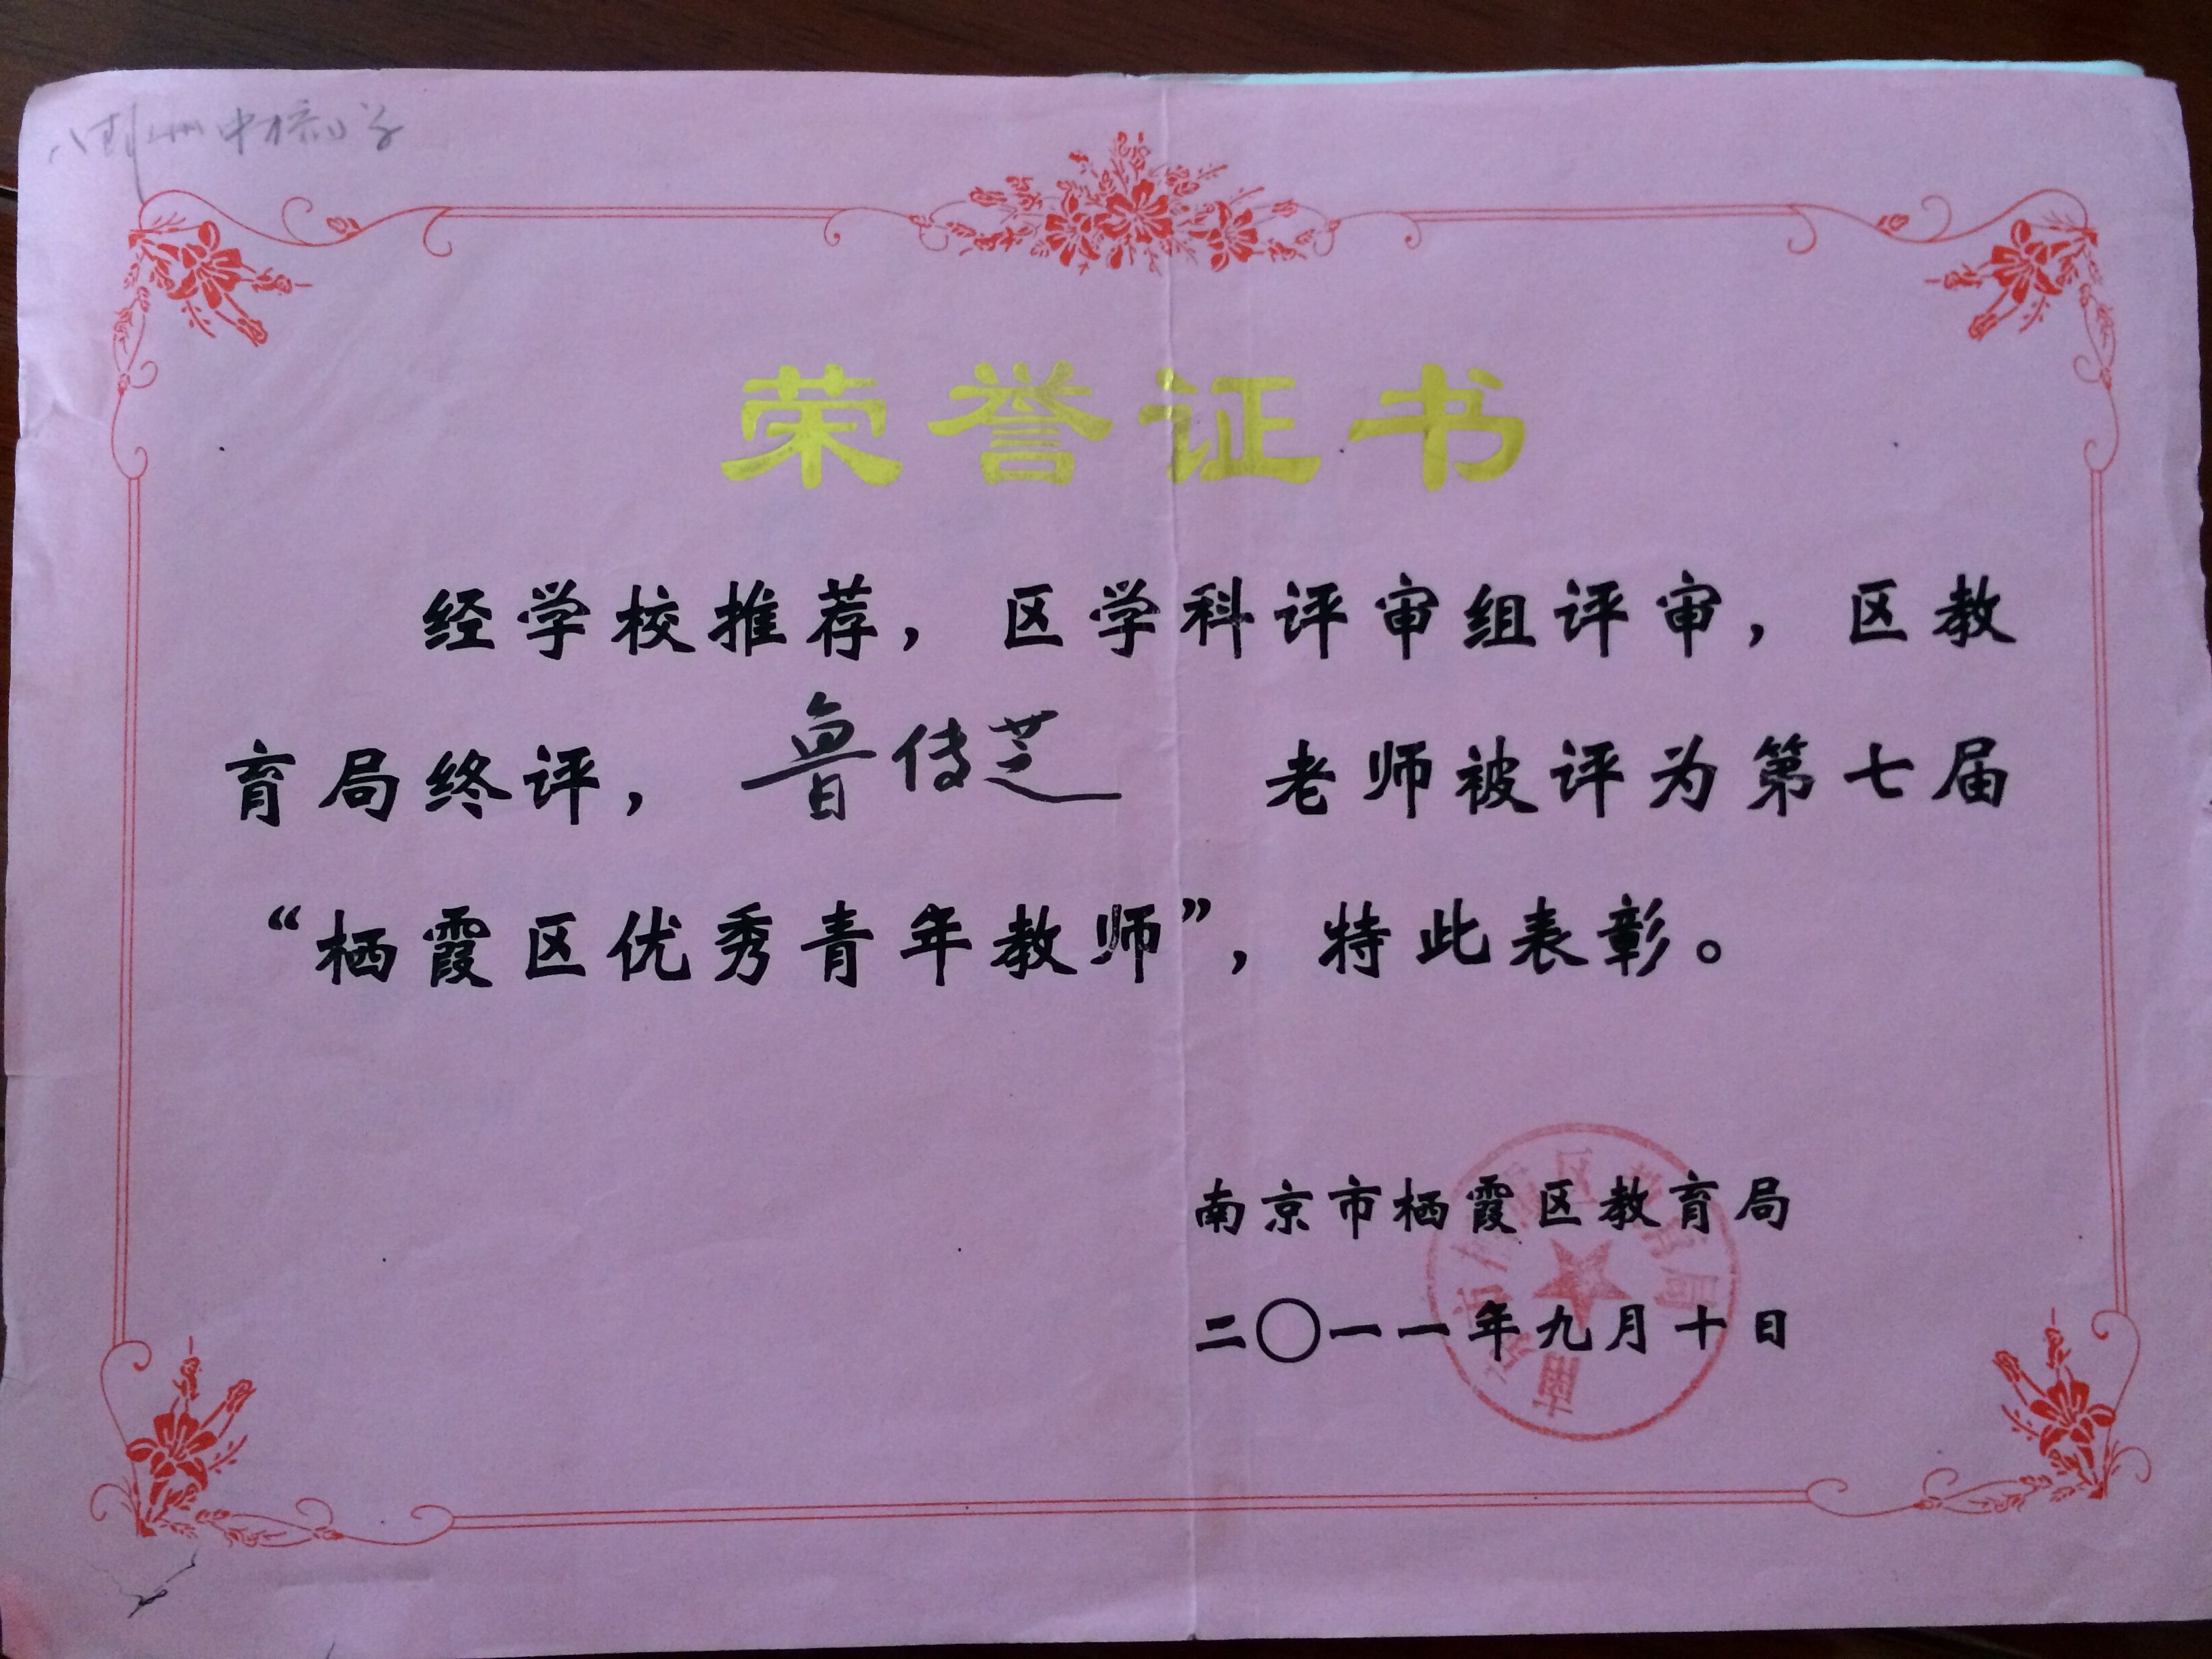 八卦洲中桥小学
荣誉证书
经学校推荐，区学科评审组评审，区教
育局终评，鲁传芝老师被评为第七届
“栖霞区优秀青年教师”，特此表彰。
南京市栖霞区教育局
二〇一一年九月十日
南京市栖霞区教育局